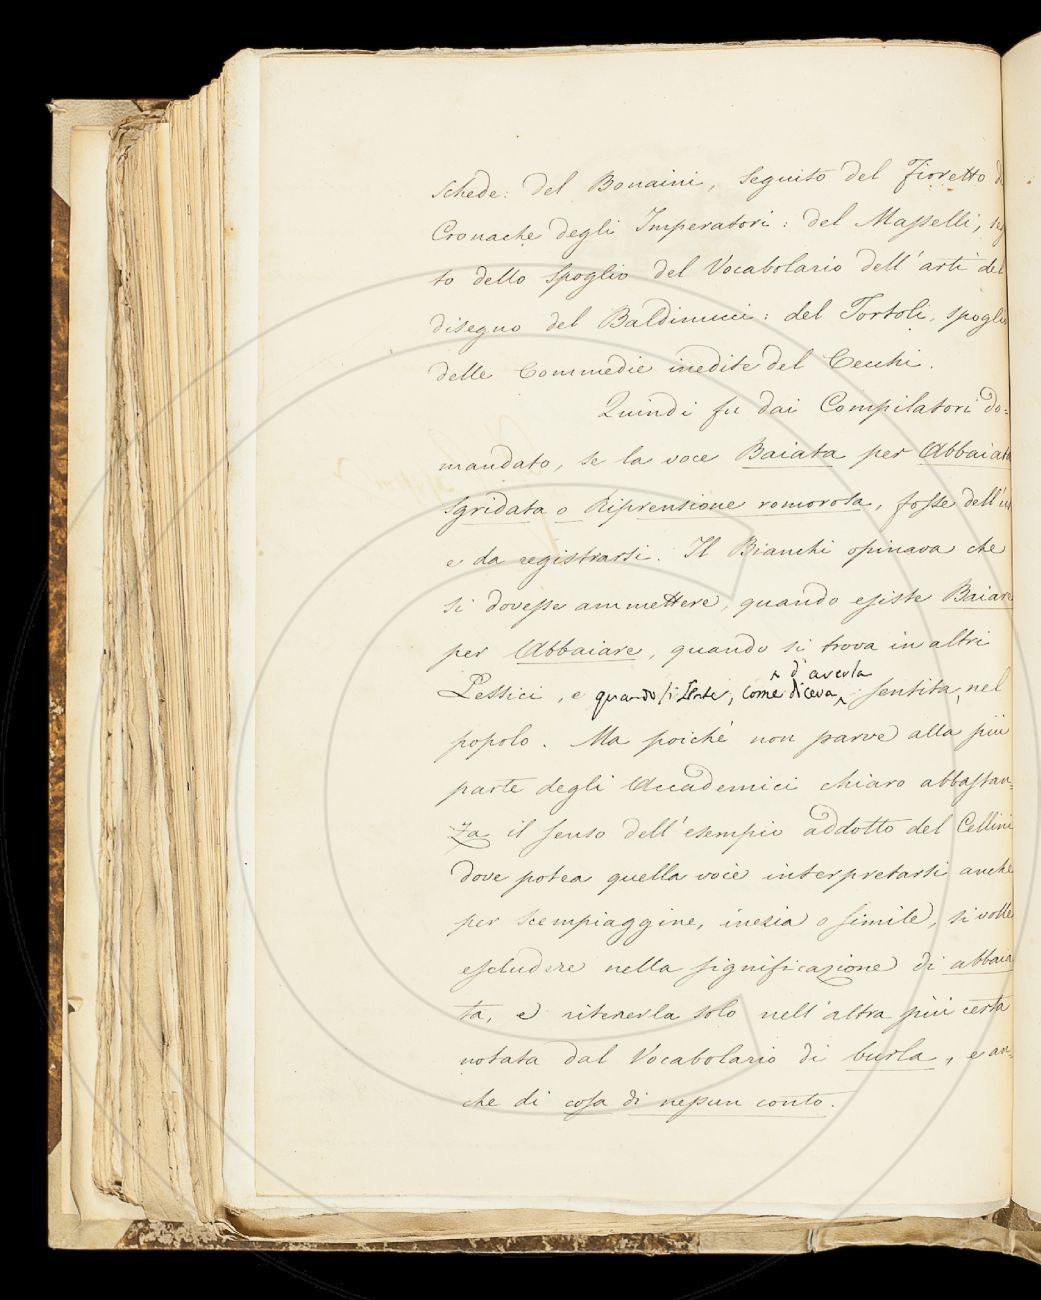 schede: del Bonaini, seguito del Fioretto d
Cronache degli Imperatori: del Masselli, seg
to dello spoglio del Vocabolario dell'arti del
disegno del Baldinucci: del Tortoli, spoglio
delle Commedie inedite del Cecchi.
Quindi fu dai Compilatori do=
mandato, se la voce Baiata per Abbaiata
sgridata o Riprensione romorosa, fosse dell'u
e da registrarsi. Il Bianchi opinava che
si dovesse ammettere, quando esiste Baiare
per Abbaiare, quando si trova in altri
d'averla
Lessici, e quando si sente, come diceva, sentita, nel
popolo. Ma poiché non parve alla più
parte degli Accademici chiaro abbastan=
za il senso dell'esempio addotto del Cellini
dove potea quella voce interpretarsi anche
per scempiaggine, inezia o simile, si volle
escludere nella significazione di abbaia
ta, e ritenerla solo nell'altra più certa
notata dal Vocabolario di burla, e an=
che di cosa di nessun conto.